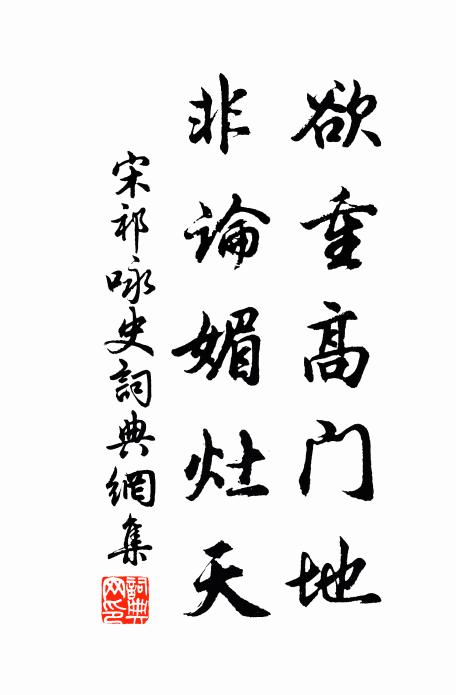 欲重高门地
非論媚灶天
宋祁咏史詞典網集
詞典網印